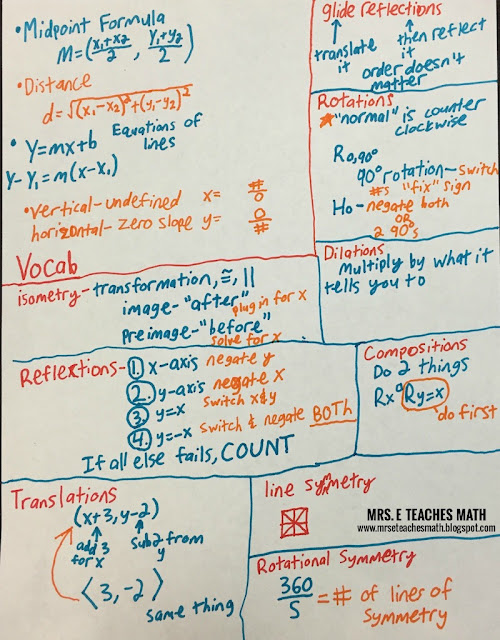 •Midpoint Formula
M=(x₁+x₂/2, y₁+y₂/2)
•Distance
d=√(x₁-x₂)²+(y₁-y₂)²
• Y=mx+b Equations of lines
Y-Y₁=m(x-x₁)
•vertical-undefined x= #/0
horizontal-zero slope y= 0/#
glide reflections
translate it
then reflect it
order doesn't matter
Rotations
*"normal" is counter clockwise
R0,90°
90° rotation-switch #s "fix" sign
Ho-negate both
OR
2 90°s
Vocab
isometry-transformation, ≅, ||
image-"after" plug in for x
Preimage-"before"
solve for x
Dilations
Multiply by what it
tells you to
Reflextions-1. x-axis negate y
2. y-axis negate X
3. y=x switch x&y
4. y=-x switch & negate BOTH
If all else fails, COUNT
Compositions
Do 2 things
Rx°Ry=x
do first
Translations
(x+3, y-2)
add 3 for x
sub 2 from y
⟨3, -2⟩
same thing
line symmetry
MRS. E TEACHES MATH
www.mrseteachesmath.blogspot.com
Rotational Symmetry
360/S = # of lines of
symmetry